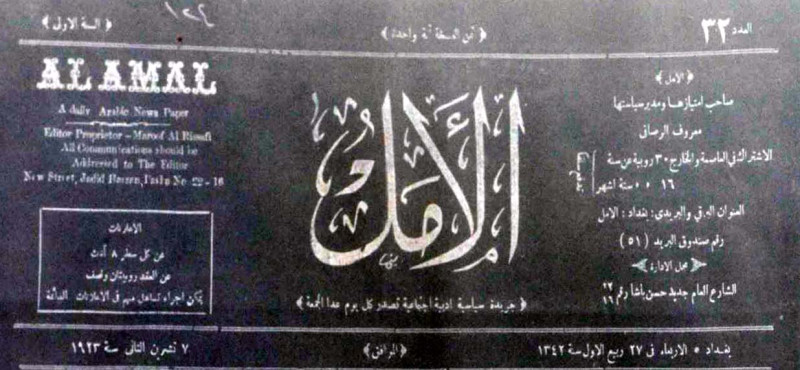 العدد ٣٢
﴿ ثمن النسخة آنة واحدة ﴾
﴿ السنة الاولى ﴾
١٢٤
﴿ الامل ﴾
صاحب امتيازها ومدير سياستها
معروف الرصافى
الاشتراك فى العاصمة والخارج ٣٠ روبية عن سنة
١٦ » » ستة اشهر
العنوان البرقى والبريدى: بغداد : الامل
رقم صندوق البريد (٥١)
﴿ محل الادارة ﴾
الشارع العام جديد حسن باشا رقم ٢٢/١٦
الأمل
﴿ جريدة سياسية ادبية اجتماعية تصدر كل يوم عدا الجمعة ﴾
AL AMAL
A daily Arabic News Paper
Editor Proprietor – Maroof Al Rissafi
All Communications should be
Addressed to The Editor
New Street, Jadid Hassan, Pasha No 22 - 16
الاعلانات
عن كل سطر ٨ آنات
عن العقد روبيتان ونصف
يمكن اجراء تساهل مهم فى الاعلانات الدائمة
بغداد » الاربعاء فى ٢٧ ربيع الاول سنة ١٣٤٢
﴿ الموافق ﴾
٧ تشرين الثانى سنة ١٩٢٣